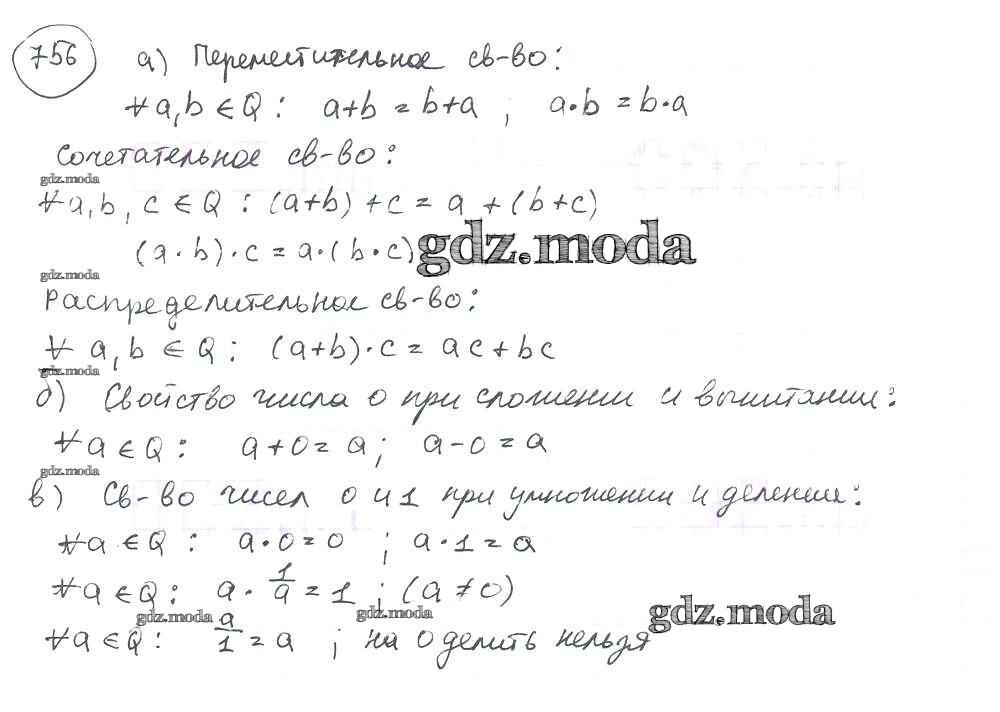 756 а) Переместительное св-во:
∀a,b ∈ Q: a+b = b+a ; a·b = b·a
Сочетательное св-во:
gdz.moda
∀a,b,c ∈ Q : (a+b)+c = a+(b+c)
(a·b)·c = a·(b·c)
gdz.moda
gdz.moda
Распределительное св-во:
∀ a,b ∈ Q: (a+b)·c = ac+bc
gdz.moda
б) Свойство числа 0 при сложении и вычитании:
∀a ∈ Q: a+0=a; a-0=a
gdz.moda
в) Св-во чисел 0 и 1 при умножении и делении:
∀a ∈ Q: a·0=0 ; a·1=a
∀a ∈ Q: a · 1/a = 1 ; (a ≠ 0)
gdz.moda gdz.moda
gdz.moda
∀a ∈ Q: a/1 = a ; на 0 делить нельзя